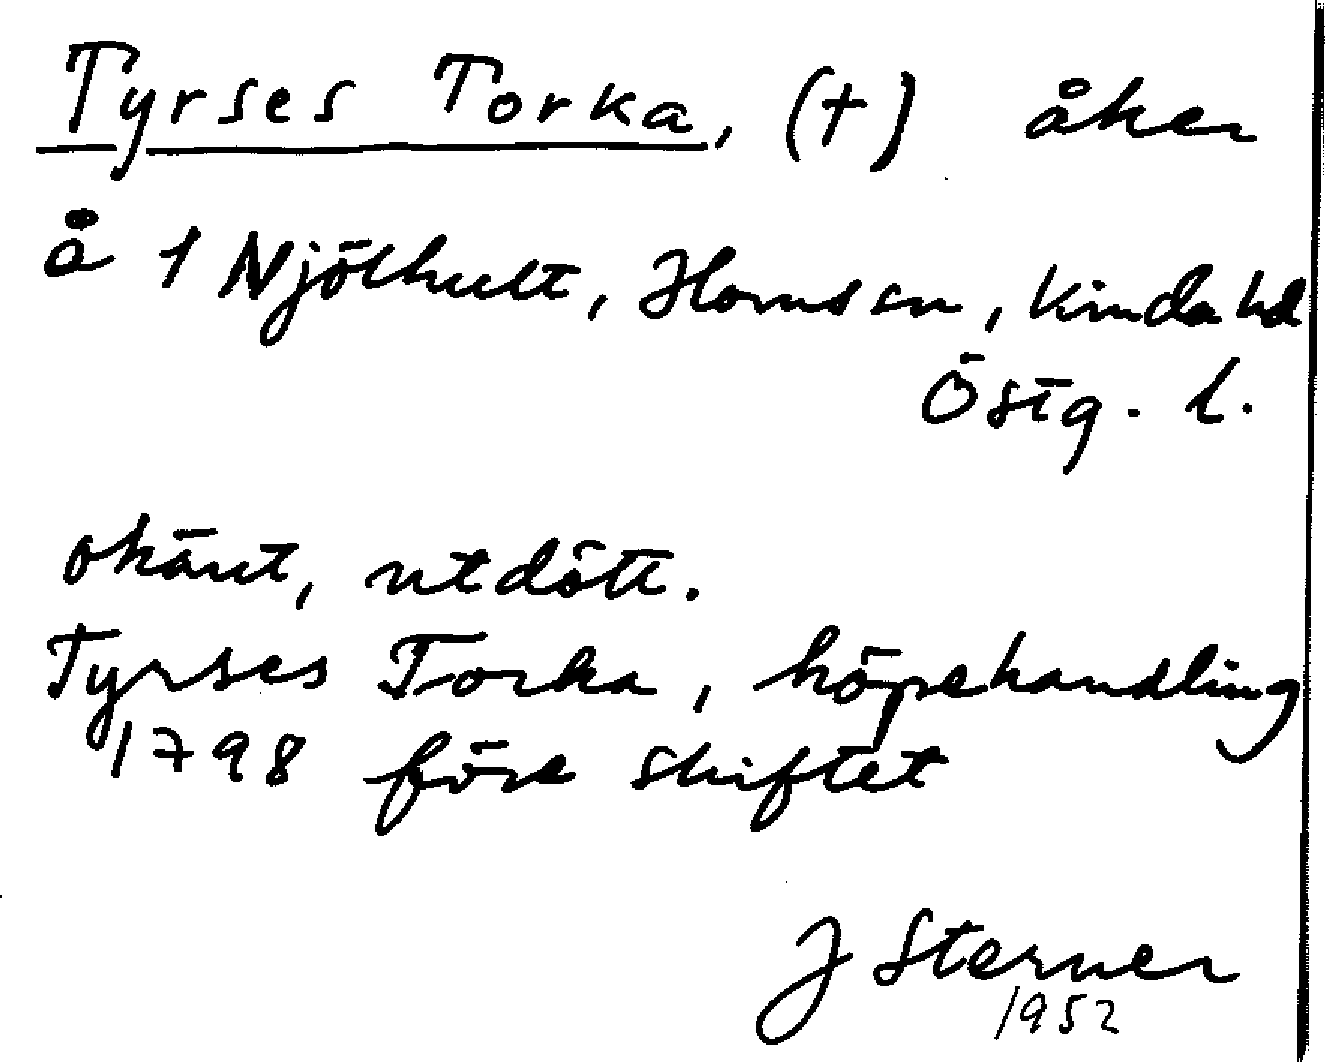 Tyrses Torka, (†) åker
å 1 Njölhult, Horns sn, Kinda hd
Östg. l.
okänt, utdött.
Tyrses Torka, köpehandling
1798 före skiftet
J Sterner
1952